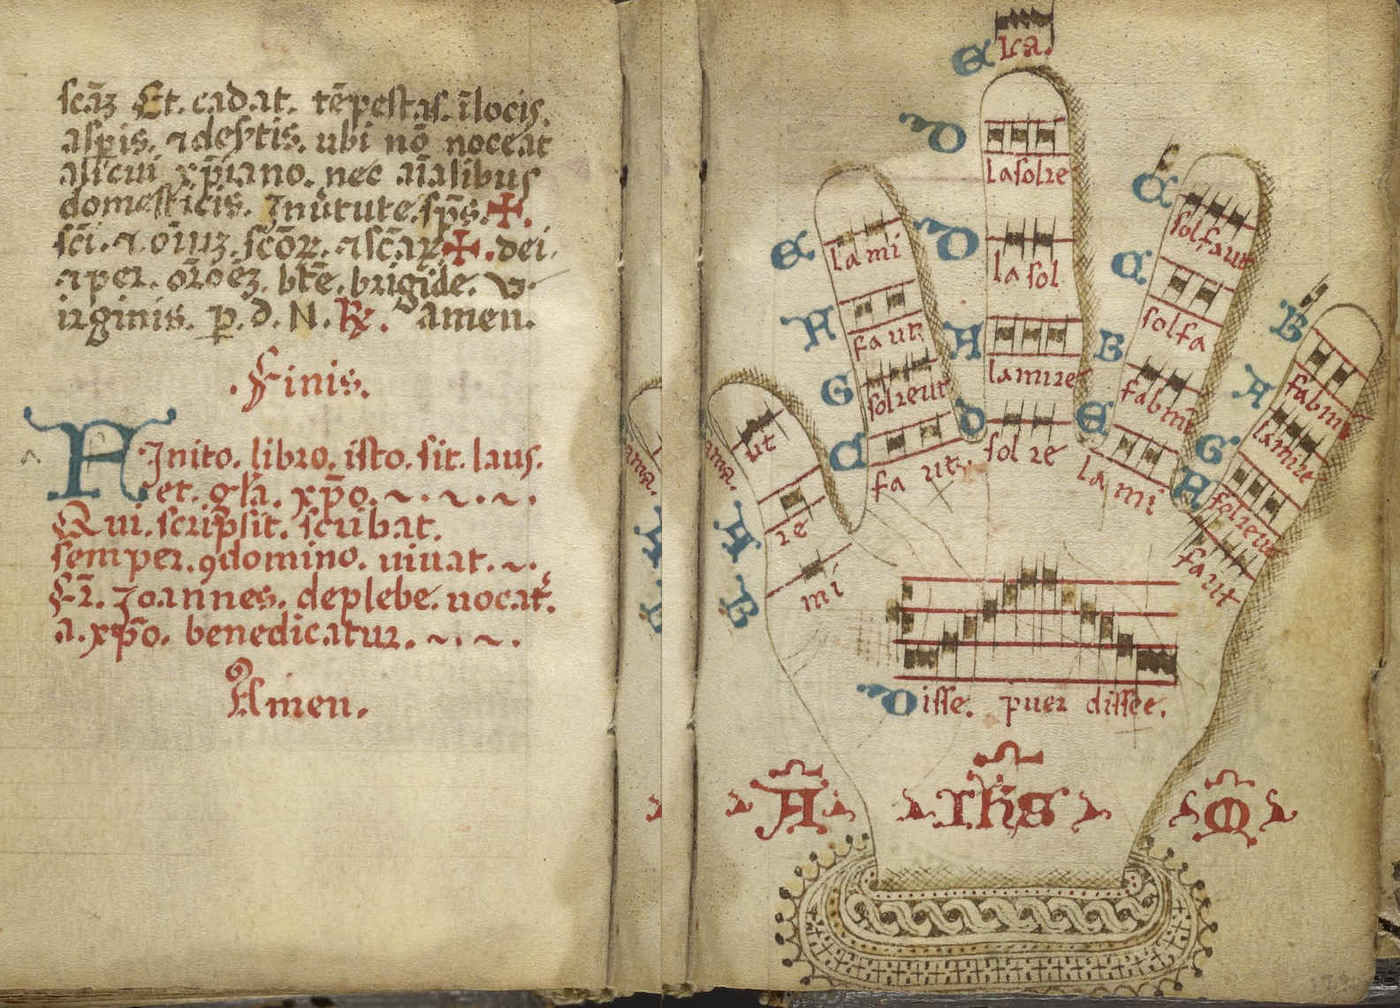 scā3 Et. cad.at. tēpestas. īlocis.
aspis. ⁊desertis. ubi nō noceat
alicui xp̄iano. nec aīalibus
domesticis. Inuirtute. sp̄s. ✠.
sci. ⁊. oīuʒ. scōꝝ. ⁊scāꝝ ✠. dei.
⁊per. orōeʒ. btē. brigide. v-
irginis. p. d. N. ℞. amen.
.Finis.
FInito. libro. isto. sit. laus.
et. gl̄a. xp̄o.
Qui. scripsit. scribat.
semper. ꝯdomino. uiuat.
Fr̄. Joannes. deplebe. uocat.
a. xp̄o. benedicatur.
Amen.
E La.
D lasolre
C solfaut
E lami
D lasol
C solfa
B
A faut
A lamire
B fabmi
fabmi
G solreut
A lamire
ut
C faut
D solre
E lami
G solreut
A re
faut
B mi
Disse. puer dissce.
A yhs O